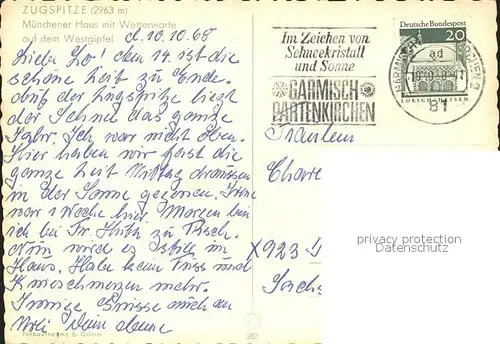 ZUGSPITZE (2963 m)
Münchener Haus mit Wetterwarte
auf dem Westgipfel
d. 10.10.68
Liebe Lo! den 14. ist die
schöne Zeit zu Ende.
Auf der Zugspitze liegt
der Schnee das ganze
Jahr. Ich war nicht oben.
Hier haben wir fast die
ganze Zeit Mittag draussen
in der Sonne gesessen.
war 1 Woche hier. Morgen bin
ich bei Fr. zu Tisch.
Nun wird es still im
Haus. Habe keine und
Knieschmerzen mehr.
Innige Grüsse auch an
Dein
Im Zeichen von
Schneekristall
und Sonne
GARMISCH
PARTENKIRCHEN
Deutsche Bundespost
20
LORSCH/HESSEN
ad
10.10.68-17
81
Fräulein
X 923
privacy protection
Datenschutz
382